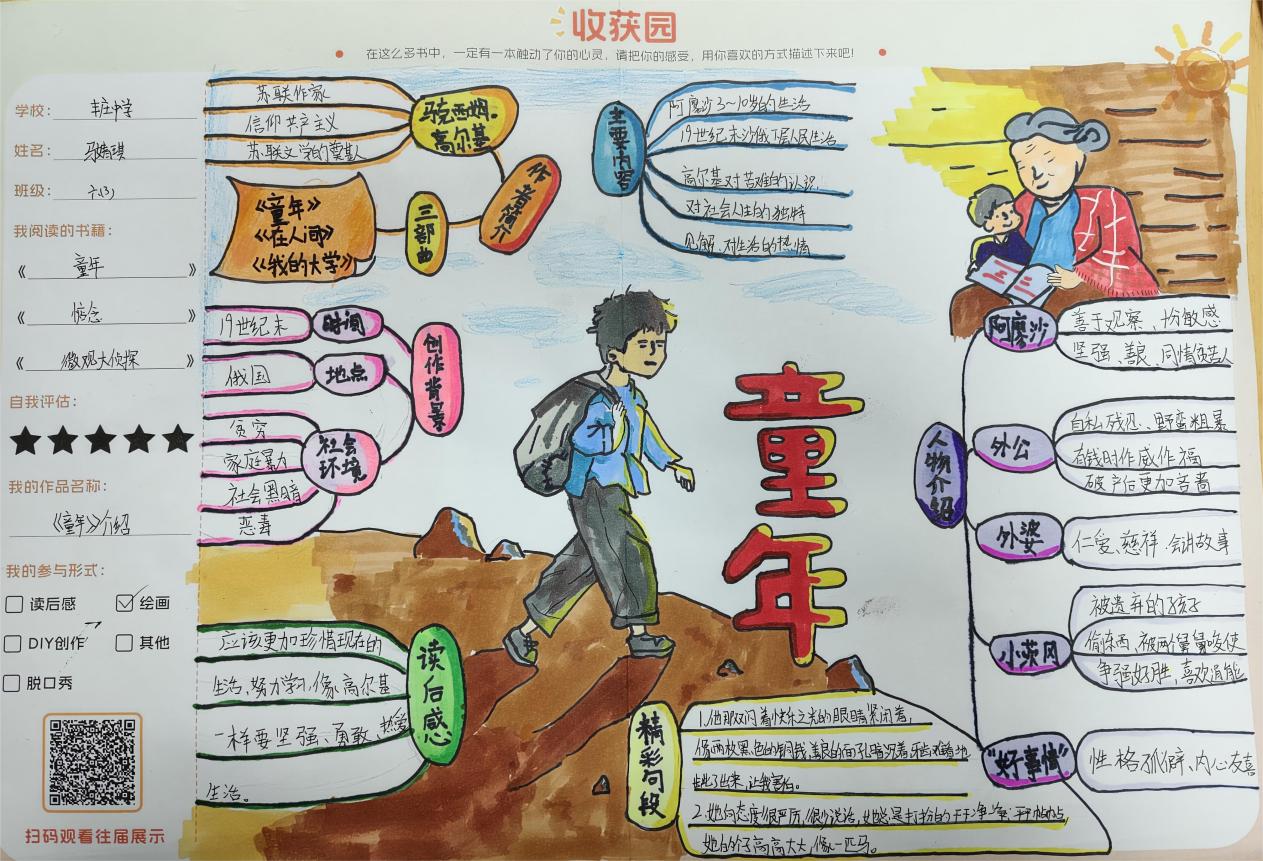 收获园
在这么多书中，一定有一本触动了你的心灵，请把你的感受，用你喜欢的方式描述下来吧！
学校：丰庄中学
姓名：
班级：六(3)
我阅读的书籍：
《童年》
《惦念》
《微观大侦探》
自我评估：
★★★★★
我的作品名称：
《童年》介绍
我的参与形式：
读后感 绘画
DIY创作 其他
脱口秀
扫码观看往届展示
作者简介
马克西姆·
高尔基
苏联作家
信仰共产主义
苏联文学的奠基人
三部曲
《童年》
《在人间》
《我的大学》
主要内容
阿廖沙3~10岁的生活
19世纪末沙俄下层人民生活
高尔基对苦难的认识
对社会人生的独特
见解、对生活的热情
创作背景
时间
19世纪末
地点
俄国
社会
环境
贫穷
家庭暴力
社会黑暗
恶毒
童年
人物介绍
阿廖沙
善于观察、扮敏感
坚强、善良、同情贫苦人
外公
自私残忍、野蛮粗暴
有钱时作威作福
破产后更加吝啬
外婆
仁爱、慈祥、会讲故事
小茨冈
被遗弃的孩子
偷东西、被两个舅舅唆使
争强好胜，喜欢逞能
“好事情”
性格孤僻、内心友善
读后感
应该更加珍惜现在的
生活、努力学习、像高尔基
一样要坚强、勇敢、热爱
生活。
精彩句段
1.他那双闪着快乐之光的眼睛紧闭着，
像两枚黑色的铜钱，善良的面孔暗沉着，牙齿难看地
龇了出来，让我害怕。
2.她向态度很严厉，很少说话，她总是打扮的干干净净、平平帖帖，
她的个子高高大大，像一匹马。